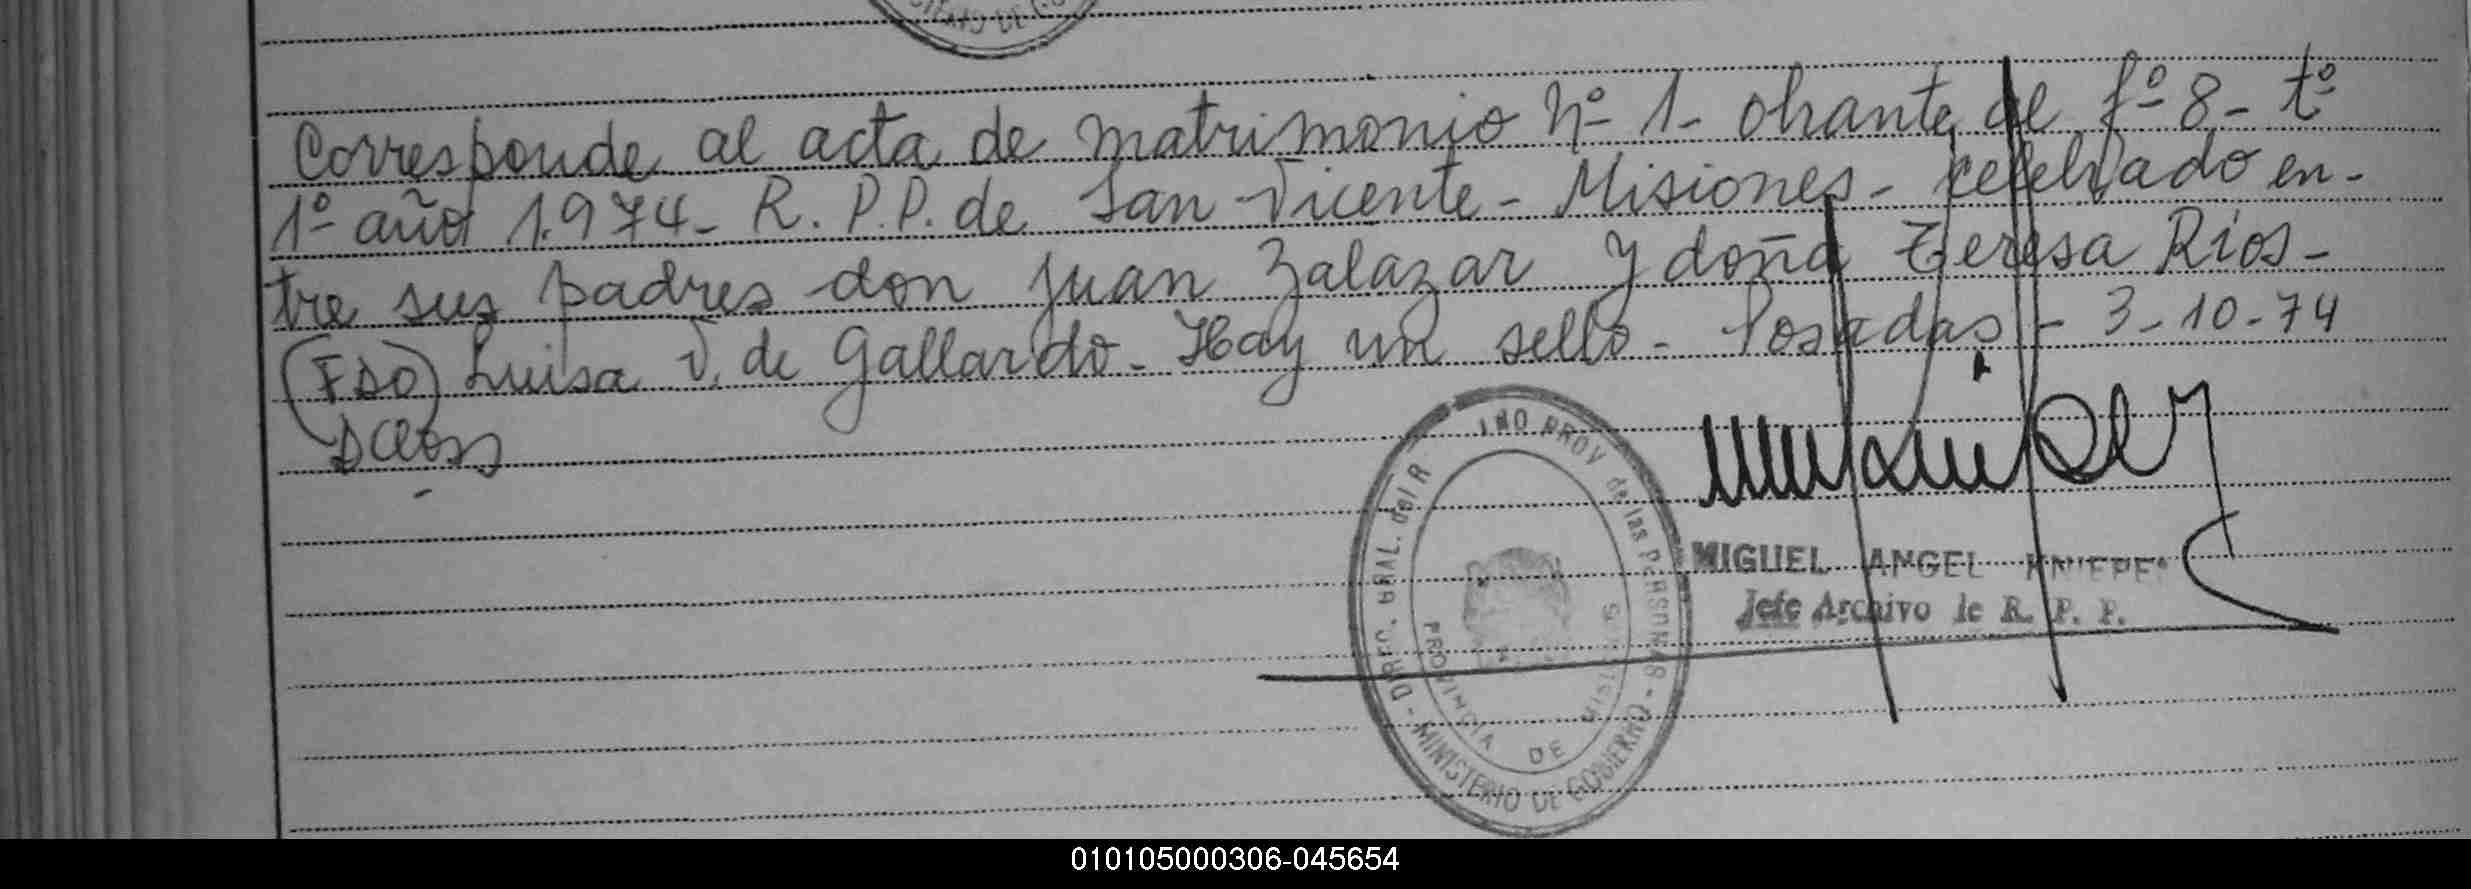 Corresponde al acta de matrimonio Nº 1- obrante, al fº 8- tº
1º año 1.974- R. P.P. de San Vicente - Misiones - celebrado en-
tre sus padres don Juan Zalazar y doña Teresa Rios -
(FDO) Luisa V. de Gallardo - Hay un sello - Posadas - 3-10-74
DIREC. GRAL. del R PROV de las PERSONAS - MINISTERIO DE GOBIERNO
PROVINCIA DE MISIONES
MIGUEL ANGEL
Jefe Archivo de R. P. P.
010105000306-045654